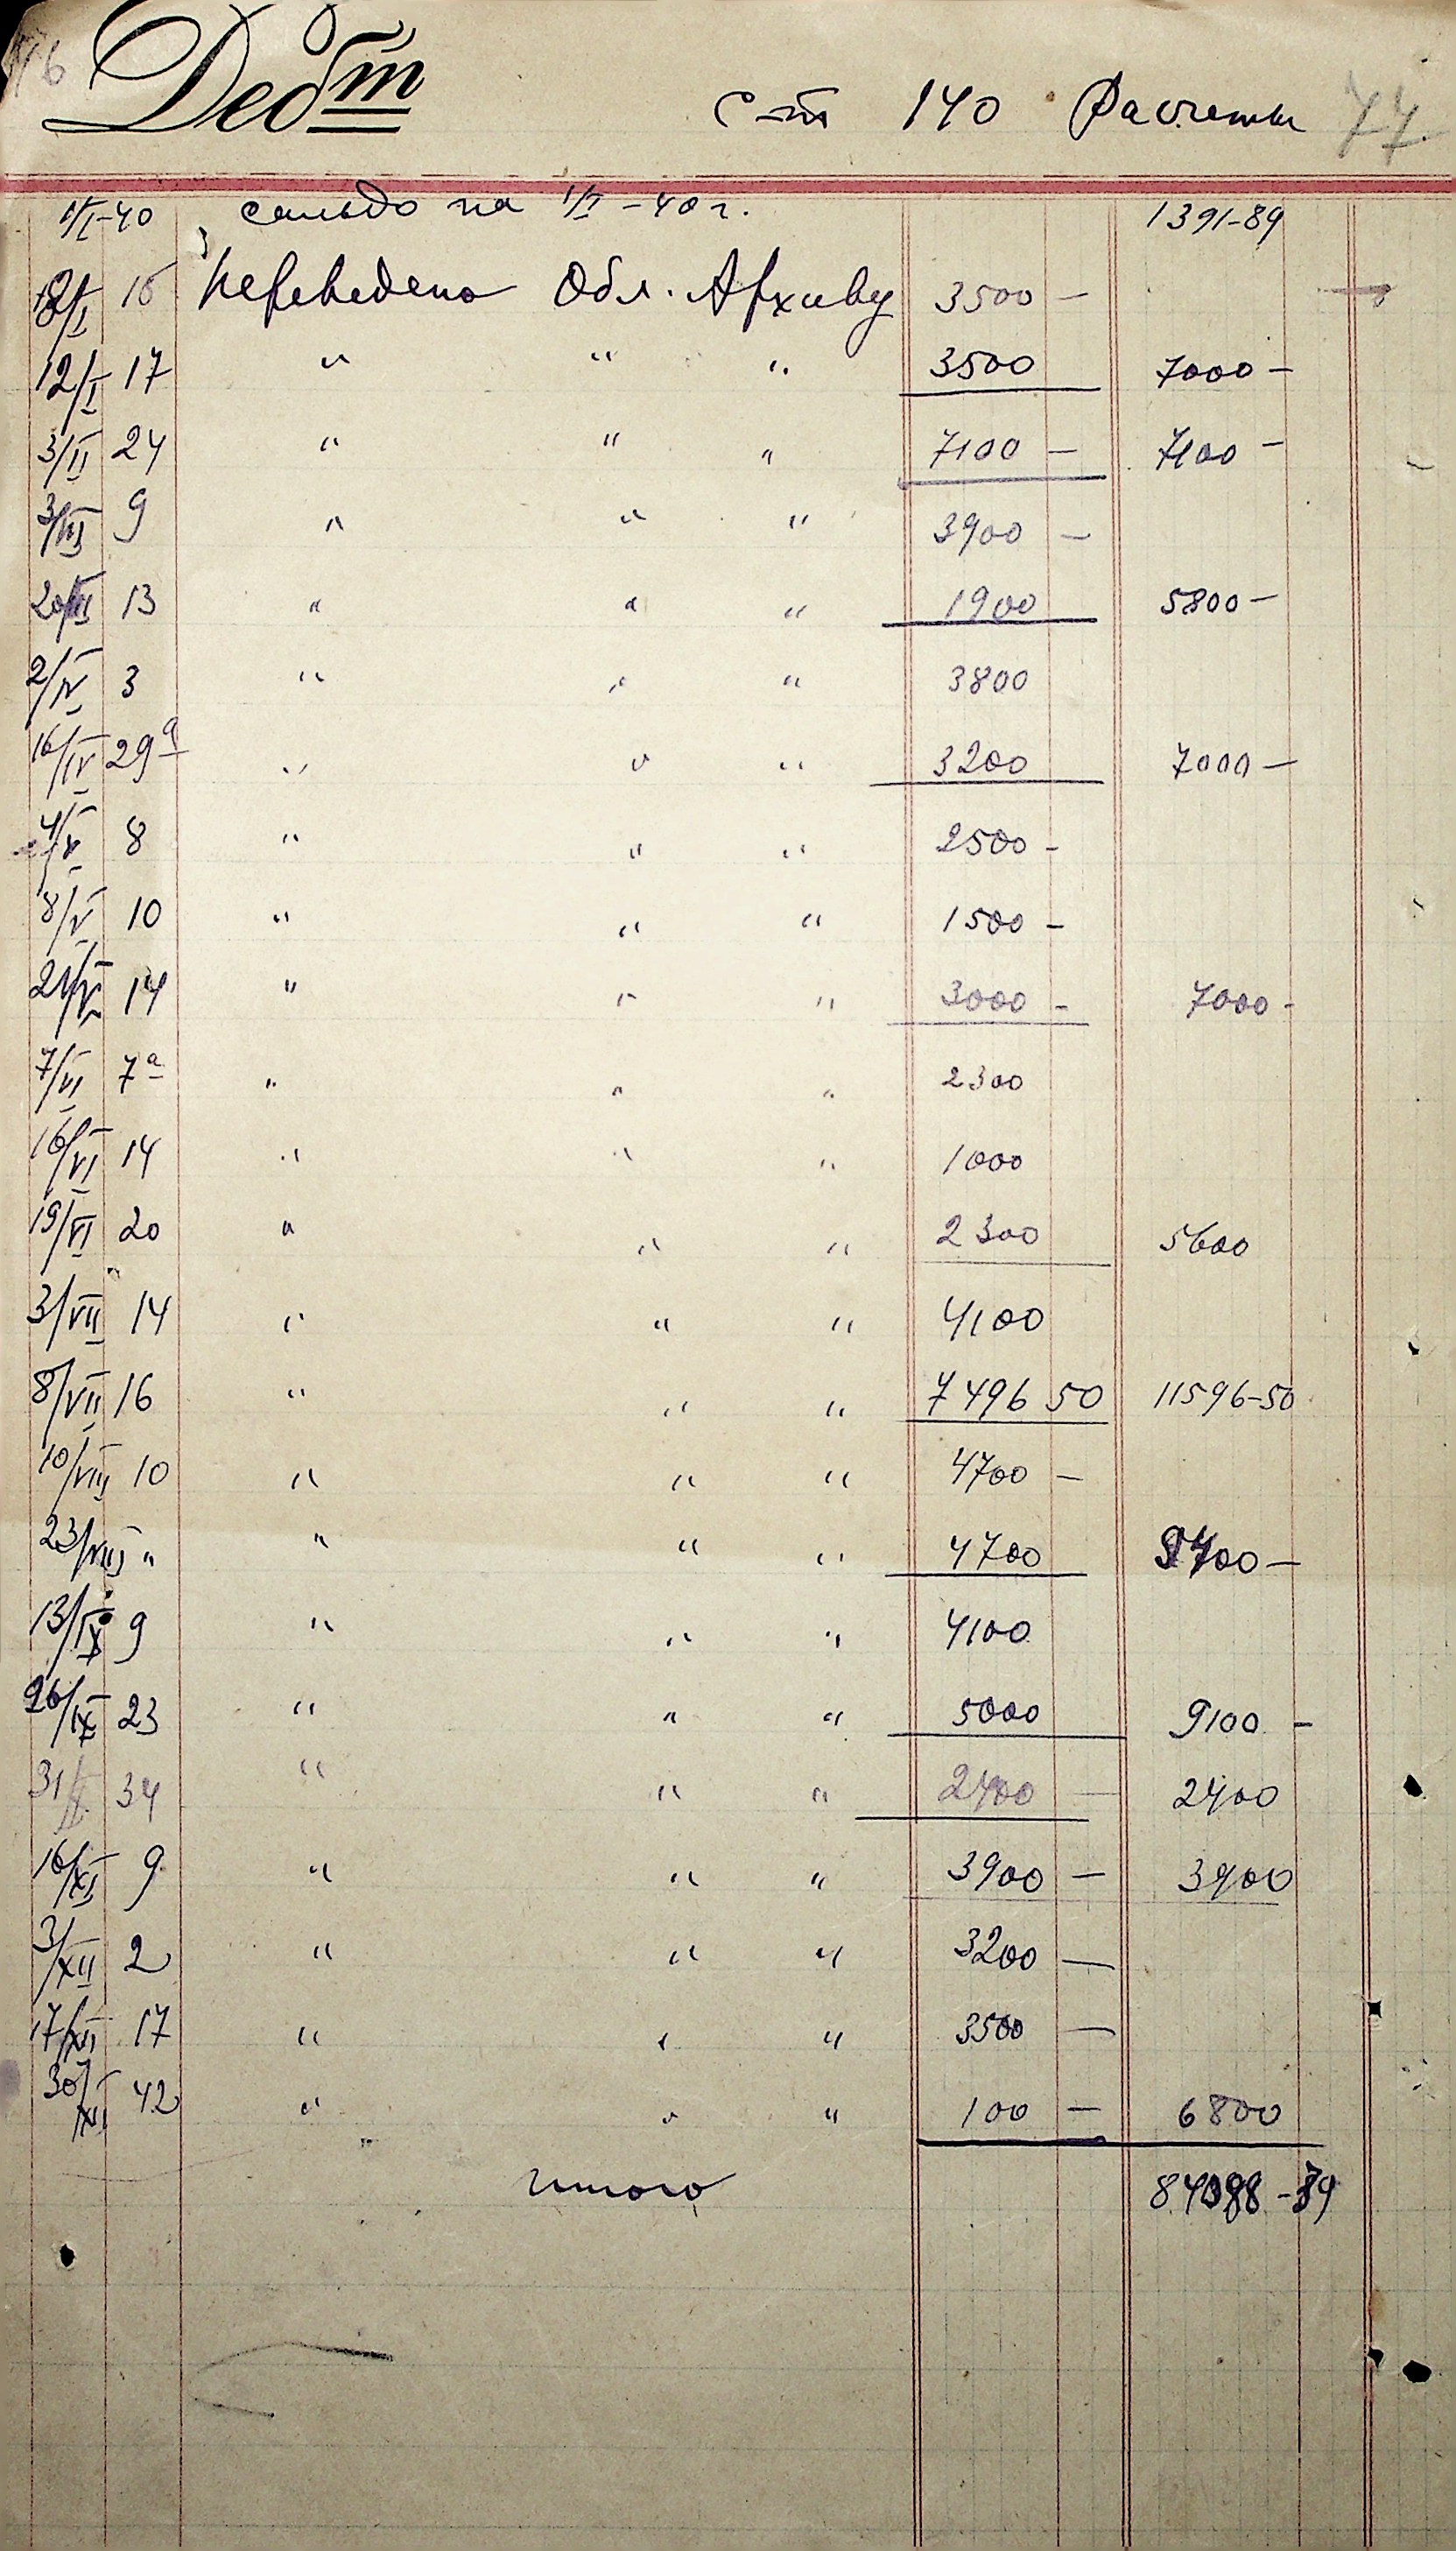 16 Дебт с-т 140 Расчеты 77
1/I-40 сальдо на 1/I-40 г. 1391-89
12/I 16 Переведено Обл. Архиву 3500 —
12/I 17 " " " 3500 7000 —
3/II 24 " " " 7100 — 7100 —
3/III 9 " " " 3900 —
20/III 13 " " " 1900 5800 —
2/IV 3 " " " 3800
16/IV 29а " " " 3200 7000 —
4/V 8 " " " 2500 -
8/V 10 " " " 1500 -
21/V 14 " " " 3000 - 7000 -
7/VI 7а " " " 2300
16/VI 14 " " " 1000
19/VI 20 " " " 2300 5600
3/VII 14 " " " 4100
8/VII 16 " " " 7496 50 11596-50
10/VIII 10 " " " 4700 —
23/VIII " " " " 4700 9400 —
13/IX 9 " " " 4100
26/IX 23 " " " 5000 9100 —
31/X 34 " " " 2400 — 2400
16/XI 9 " " " 3900 — 3900
3/XII 2 " " " 3200 —
17/XII 17 " " " 3500 —
30/XII 42 " " " 100 — 6800
итого 84088-39